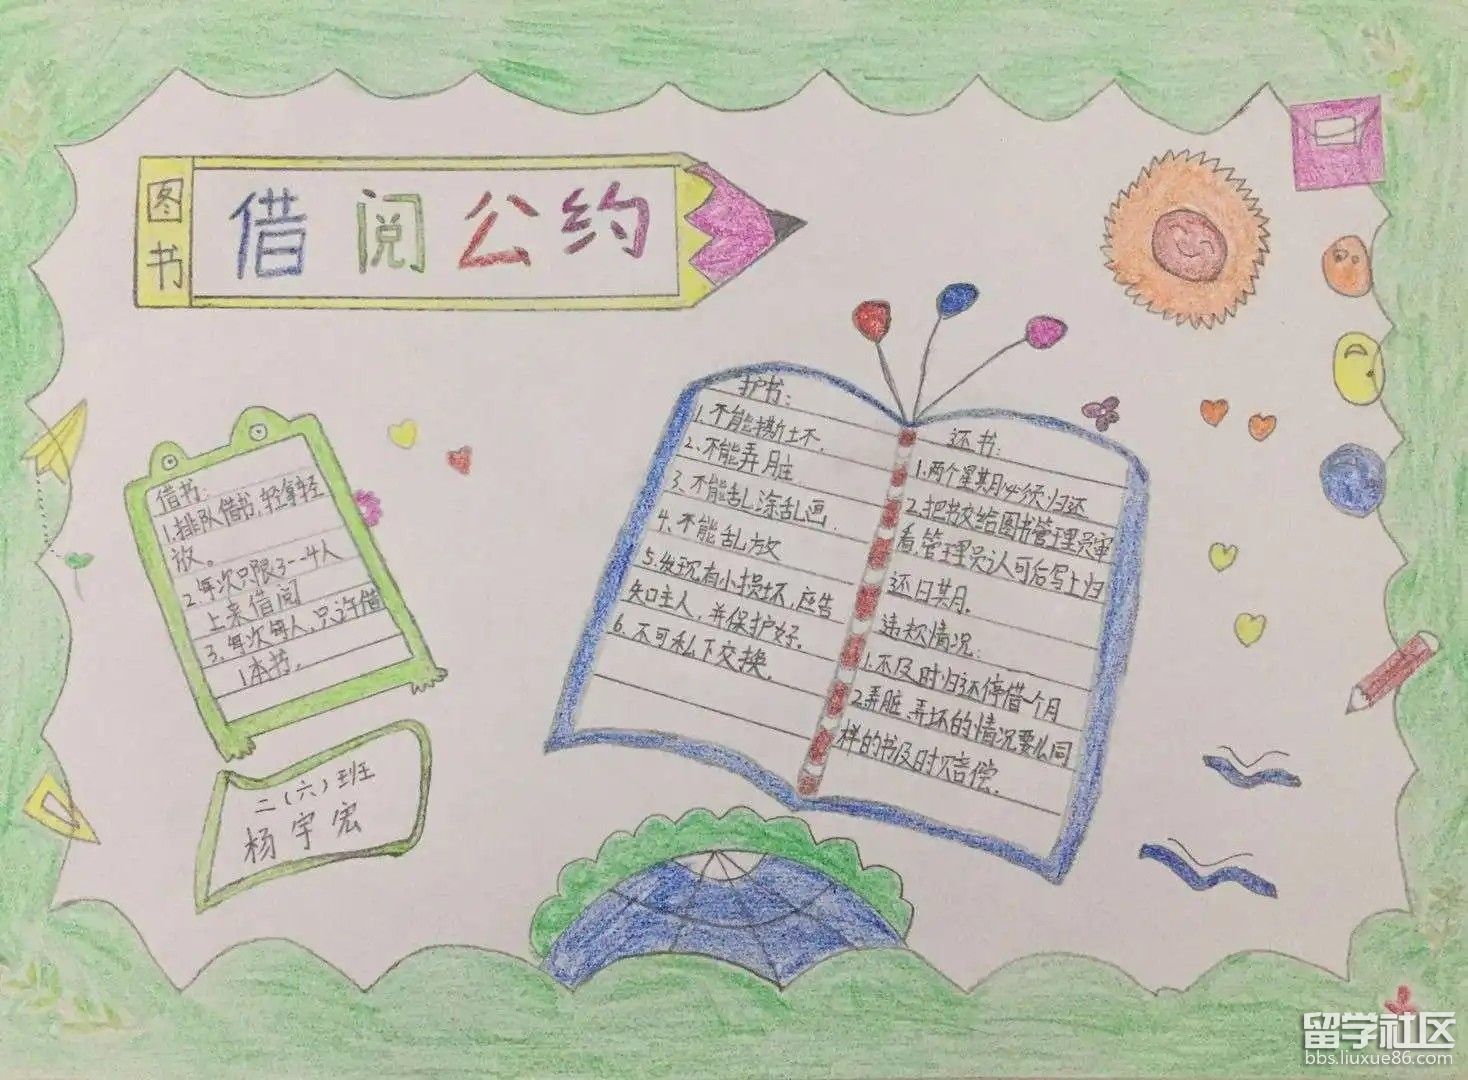 图书
借阅公约
借书:
1.排队借书,轻拿轻
放。
2.每次只限3--4人
上来借阅
3.每次每人,只许借
1本书。
二(六)班
杨宇宏
护书:
1.不能撕坏.
2.不能弄脏
3.不能乱涂乱画.
4.不能乱放
5.发现有小损坏,应告
知主人,并保护好。
6.不可私下交换.
还书:
1.两个星期必须归还
2.把书交给图书管理员审
看,管理员认可后写上归
还日期。
违规情况:
1.不及时归还停借一个月
2.弄脏、弄坏的情况要以同
样的书及时赔偿。
留学社区
bbs.liuxue86.com